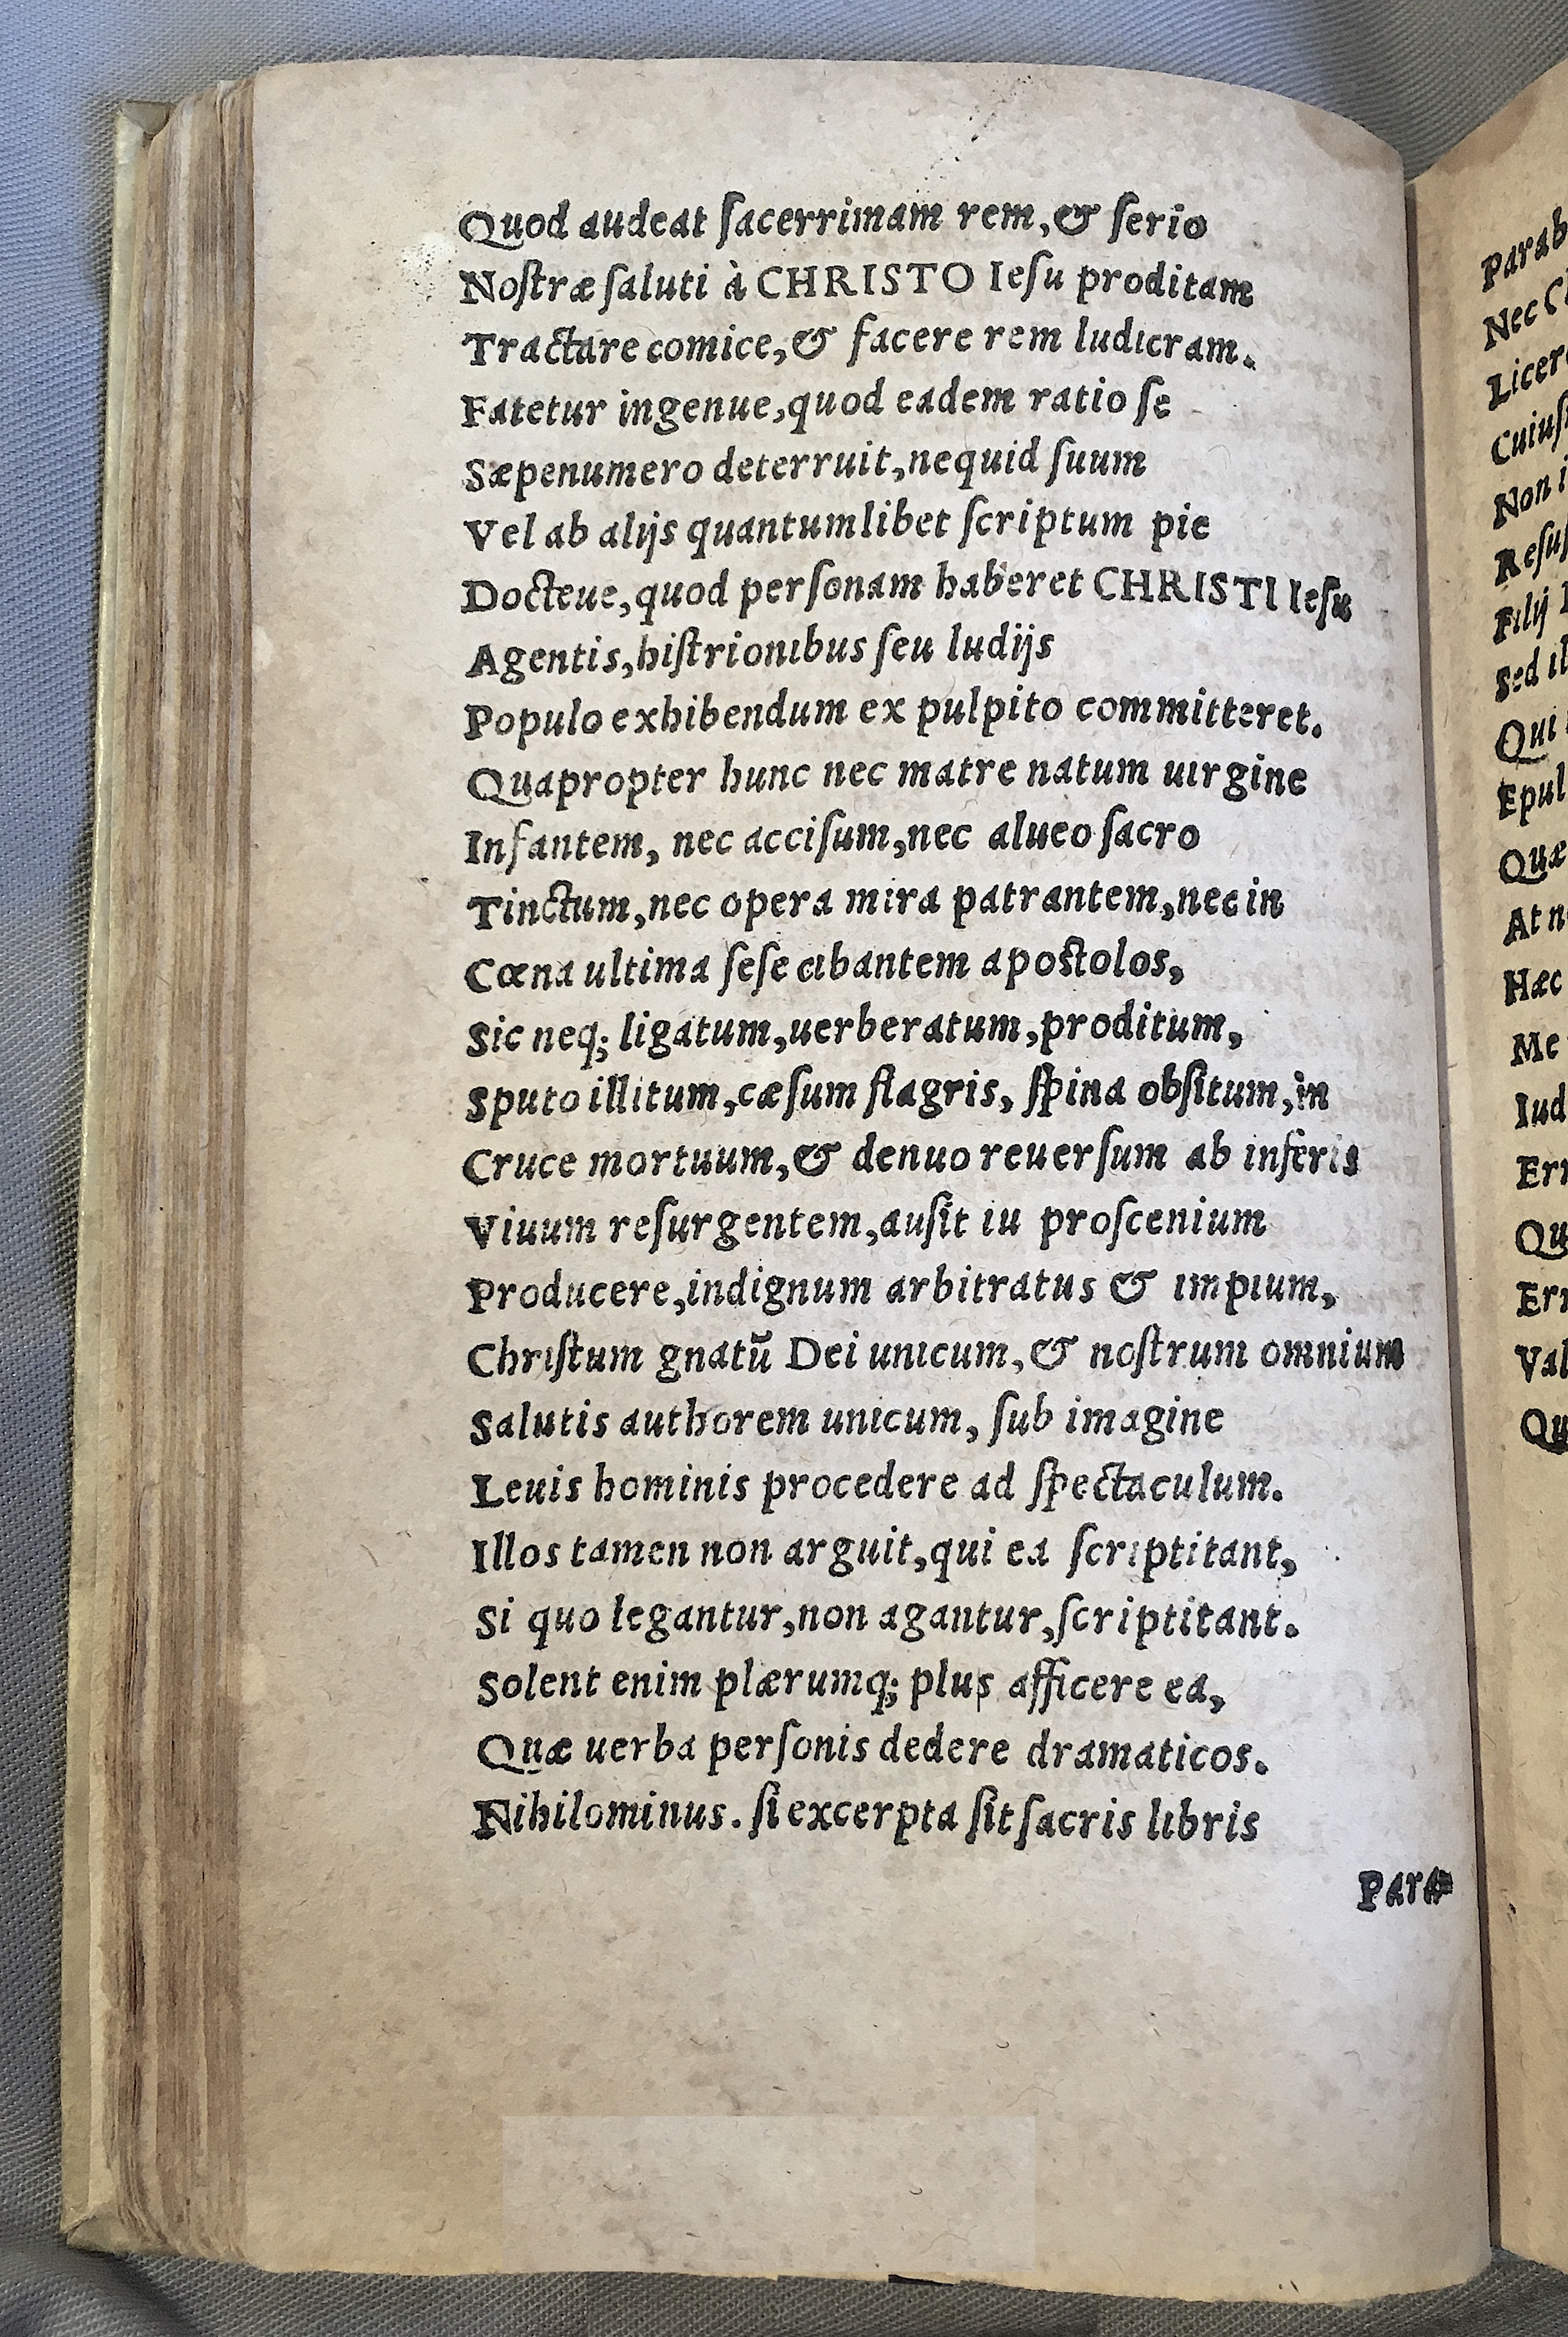 Quod audeat ſacerrimam rem,& ſerio
Noſtræ ſaluti à CHRISTO Ieſu proditam
Tractare comice,& facere rem ludicram.
Fatetur ingenue,quod eadem ratio ſe
Sæpenumero deterruit,nequid ſuum
Vel ab alijs quantumlibet ſcriptum pie
Docteue,quod perſonam haberet CHRISTI Ieſu
Agentis,hiſtrionibus ſeu ludijs
Populo exhibendum ex pulpito committeret.
Quapropter hunc nec matre natum uirgine
Infantem, nec acciſum,nec alueo ſacro
Tinctum,nec opera mira patrantem,nec in
Cœna ultima ſeſe cibantem apoſtolos,
Sic neq; ligatum,uerberatum,proditum,
Sputo illitum,cæſum flagris, ſpina obſitum,in
Cruce mortuum,& denuo reuerſum ab inferis
Viuum reſurgentem,auſit iu proſcenium
Producere,indignum arbitratus & impium,
Chriſtum gnatũ Dei unicum,& noſtrum omnium
Salutis authorem unicum, ſub imagine
Leuis hominis procedere ad ſpectaculum.
Illos tamen non arguit,qui ea ſcriptitant,
Si quo legantur,non agantur,ſcriptitant.
Solent enim plærumq; plus afficere ea,
Quæ uerba perſonis dedere dramaticos.
Nihilominus. ſi excerpta ſit ſacris libris
Para=
Parab
Nec
Licer
Cuiuſ
Non i
Reſuſ
Filij
Sed il
Qui
Epul
Quæ
At n
Hæc
Me
Iud
Err
Qu
Err
Val
Qu